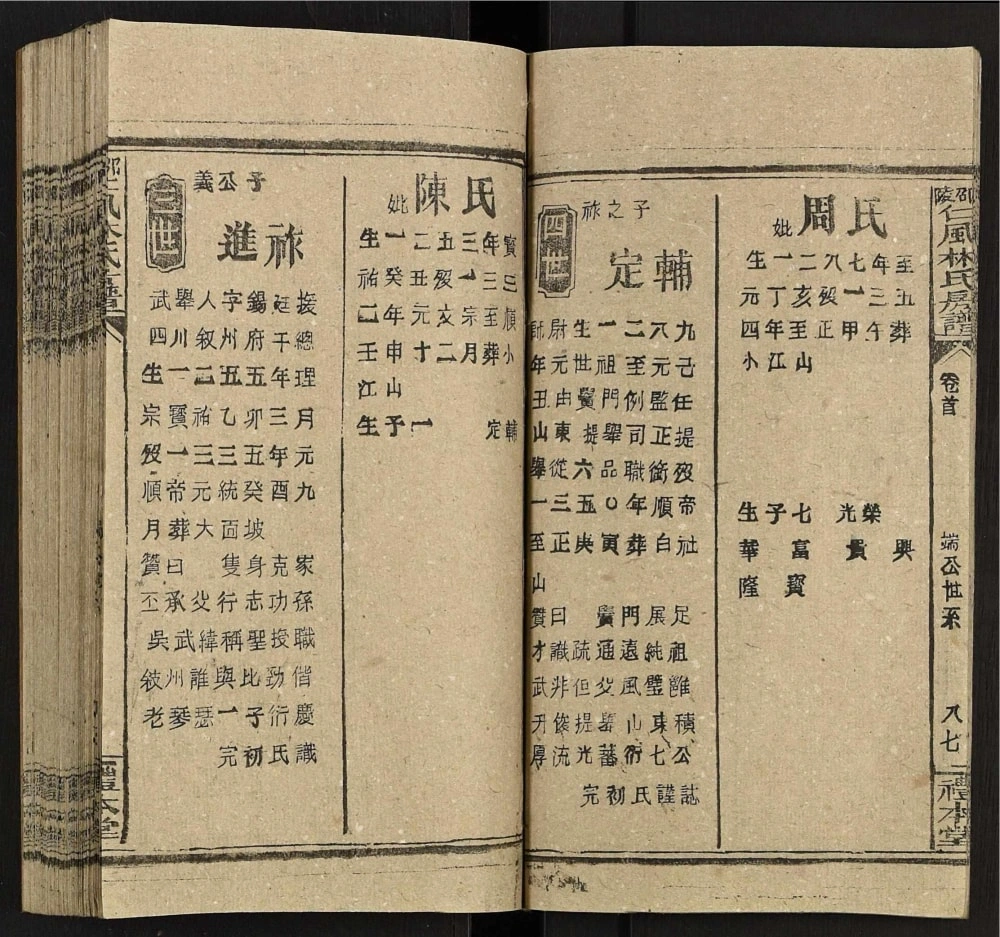 邵陵仁風林氏房譜
卷首
端公世系
八七
禮本堂
妣周氏
生一二八七年至
元丁亥歿一三五
四年至正甲午葬
小江山
生子七 光榮
華富貴興
隆寶
四世
祚之子
定輔
尉生一二八九
年元世祖至元己
丑由黌門例監任
山東提舉司正提
舉從六品職銜歿
一三五〇年順帝
至正庚寅葬白社
山
贊曰 黌門展足
才識疏通遠純祖
武非但父風璧雖
丹俊提墓山東積
厚流光蕃衍七公
完初氏謹誌
妣陳氏
生一二五三年寶
祐癸丑歿一三三
二年元文宗至順
壬申十二月葬小
江山
生子一 定輔
三世
義公子
進祚
武舉人字錫廷接
四川敘州府千總
生一二五五年理
宗寶祐乙卯三月
歿一三三五年元
順帝元統癸酉九
月葬大面坡
贊曰 隻身克家
丕承父行志功孫
吳武緯稱聖授職
敘州誰與比勁偕
老琴瑟一子衍慶
完初氏識
禮本堂